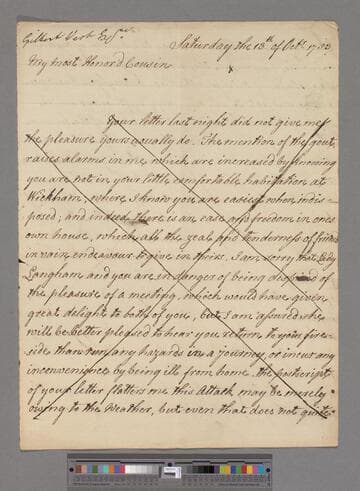 Gilbert West Esqr.
Saturday the 13th of Octr. 1753
My most Honor'd Cousin
x
Your letter last night did not give me
the pleasure yours usually do. The mention of the gout
raises alarms in me which are increased by knowing
you are not in your little comfortable habitation at
Wickham, where I know you are easiest when indis-
posed; and indeed there is an ease and freedom in one's
own house, which all the zeal and tenderness of friends
in vain endeavour to give in theirs. I am sorry that Lady
Langham and you are in danger of being disappointed of
the pleasure of a meeting, which would have given
great delight to both of you, but I am assured she
will be better pleased to hear you return to your fire-
side than run any hazards in a journey, or incur any
inconvenience by being ill from home. the postscript
of your letter flatters me this Attack may be merely
owing to the Weather, but even that does not quite